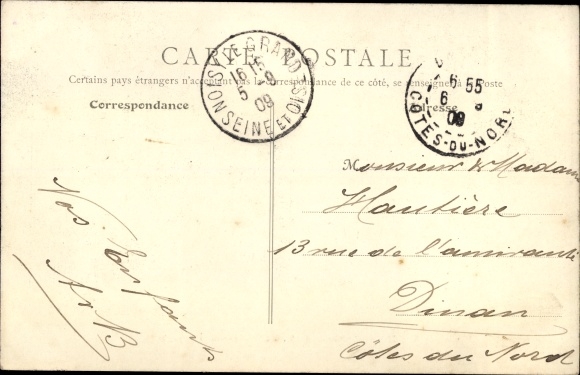 CARTE POSTALE
Certains pays étrangers n'acceptant pas la correspondance de ce côté, se renseigner à la Poste
Correspondance
Adresse
GRAND
16 15
5 - 9
09
SEINE ET OISE
6 55
6 9
09
COTES-DU-NORD
Monsieur & Madame
Hautière
13 rue de l'amirauté
Dinan
Côtes du Nord
Nos Enfants